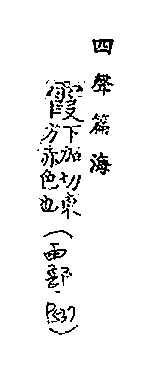 四聲篇海
霞下加切東
方赤色也(雨部.P537)